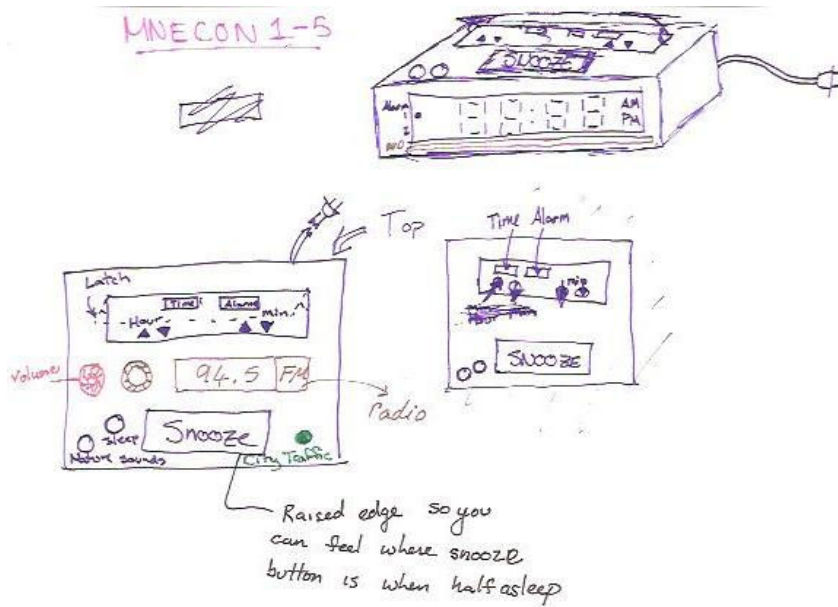 MNECON 1-5
SNOOZE
Alarm
1
2
AM
PM
Top
Latch
Time
Alarm
Hour
min.
Volume
94.5 FM
radio
sleep
Snooze
Nature sounds
City Traffic
Time Alarm
min
SNOOZE
Raised edge so you
can feel where snooze
button is when half asleep